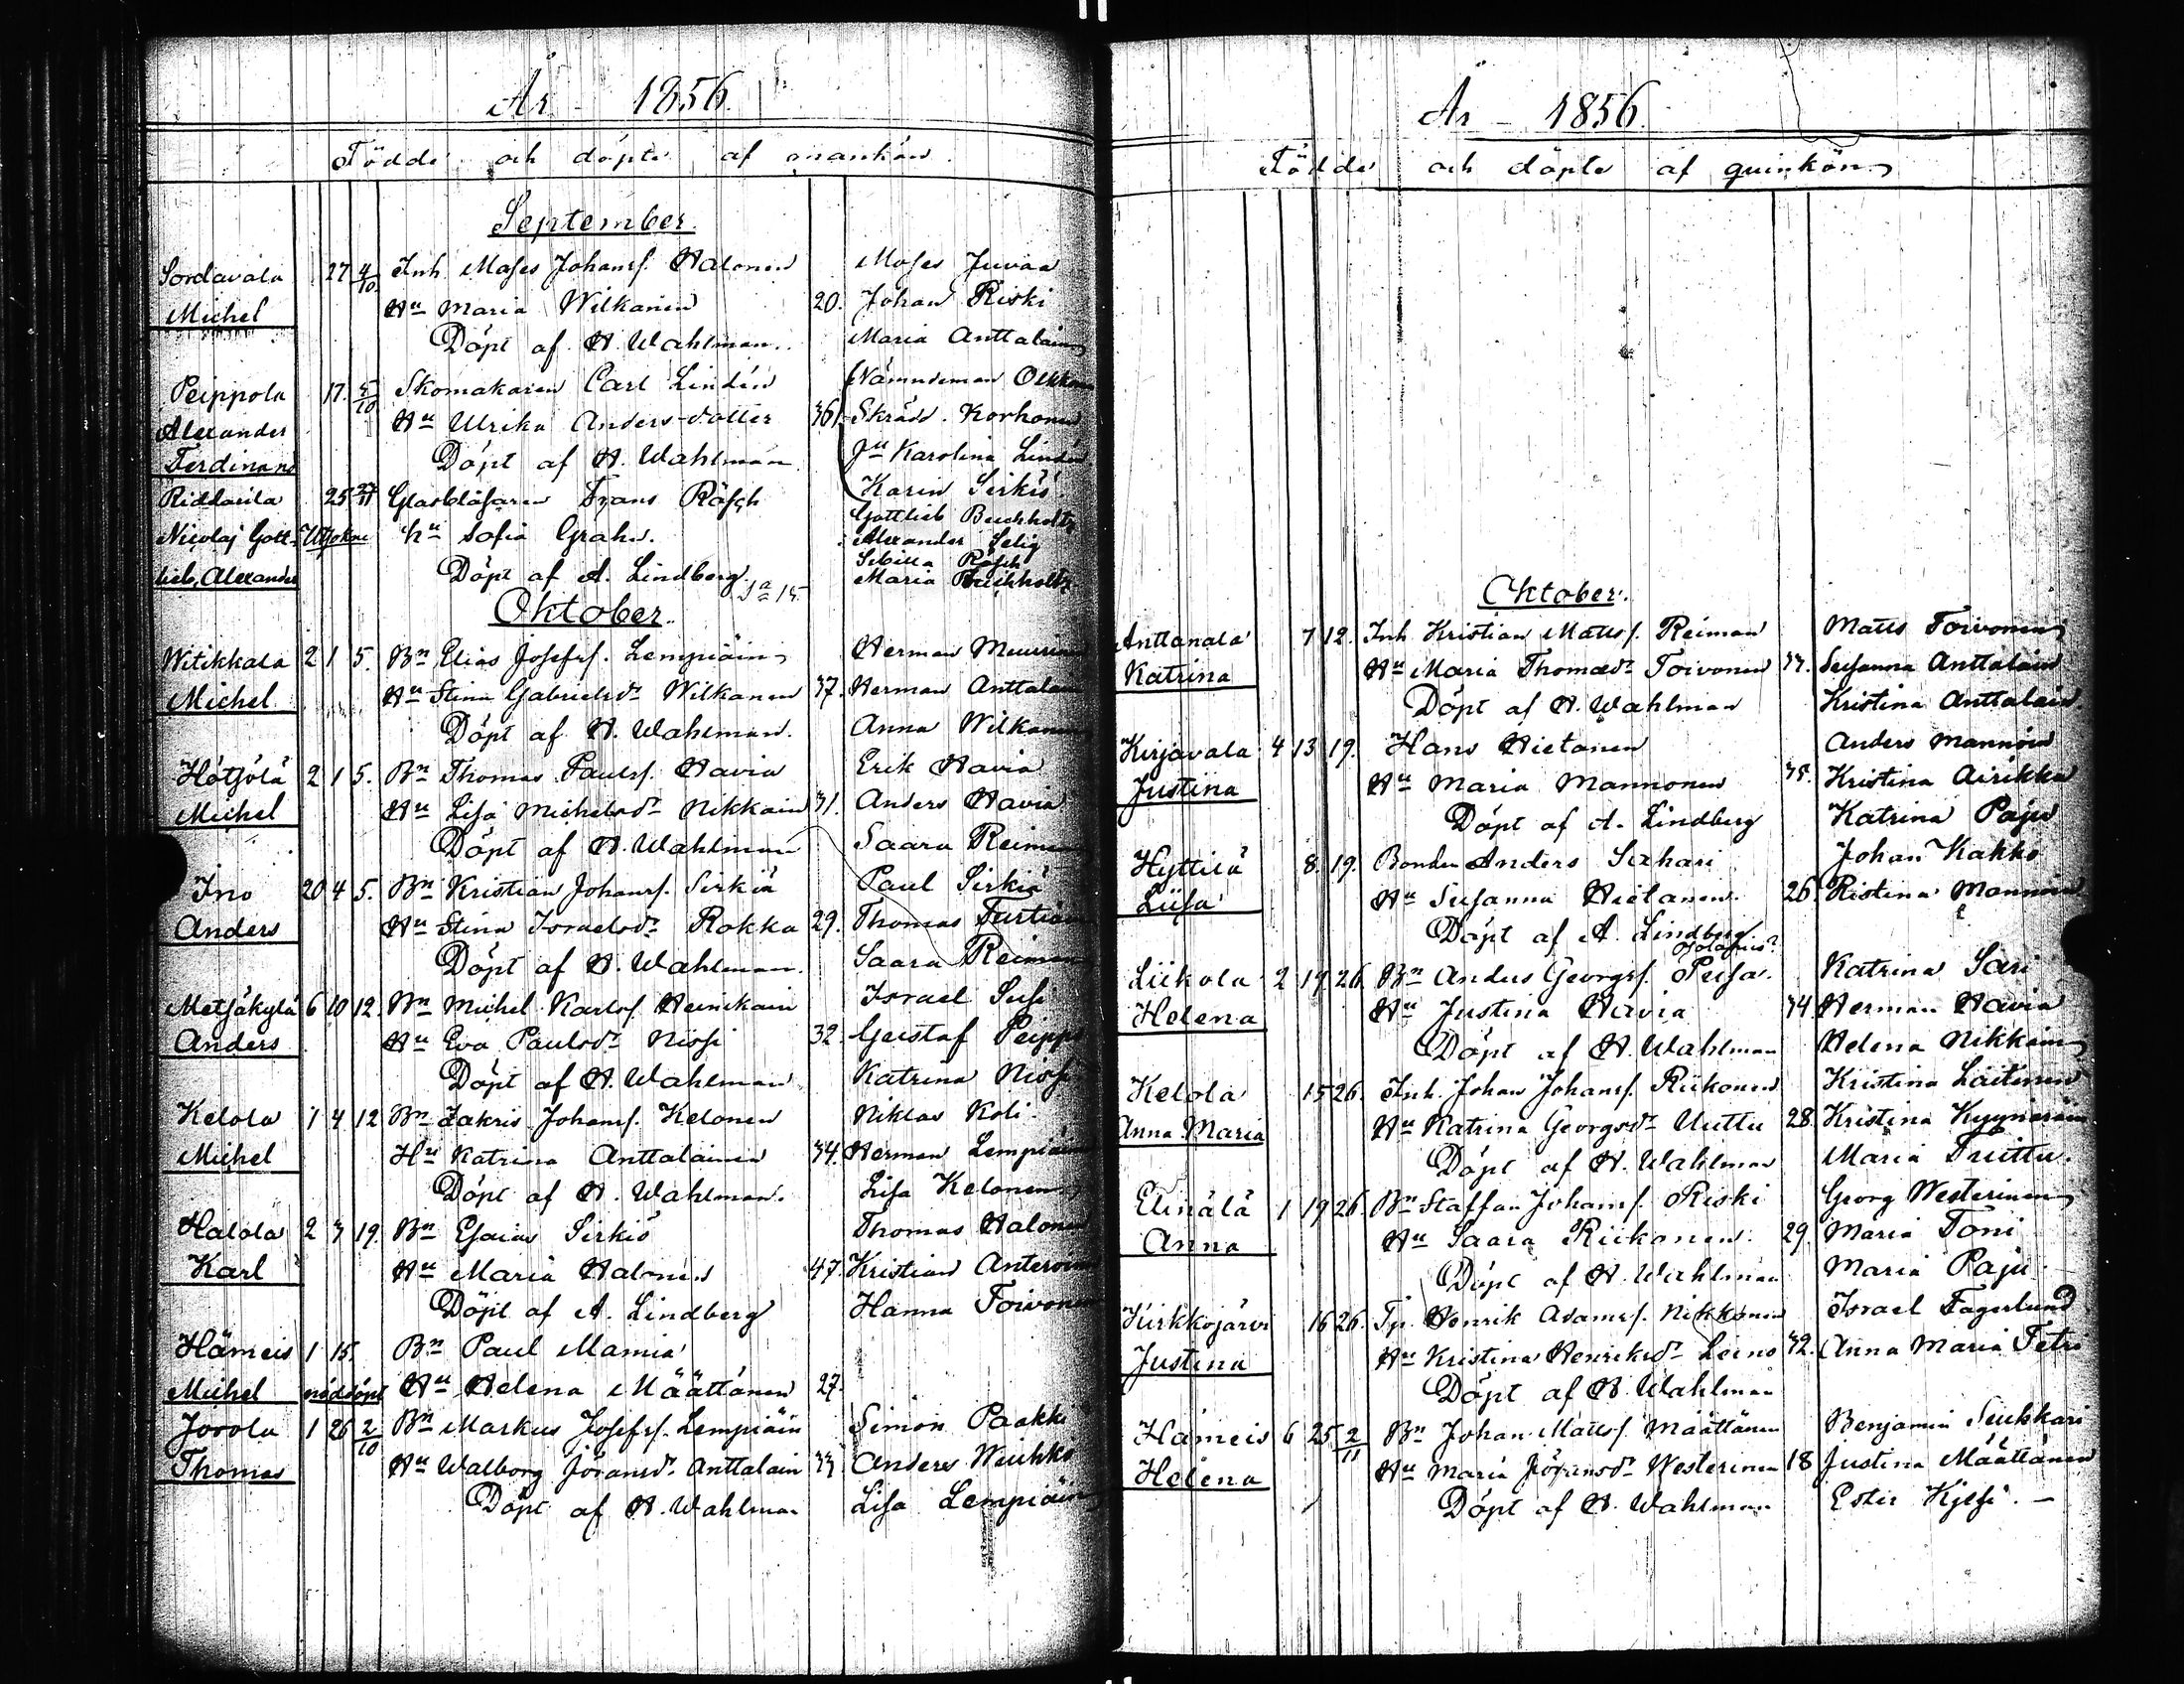 År - 1856.
Födde och döpte af mankön.
September.
Sordavala 27 4/10 Inh. Moses Johansf. Halonen Moses Juvaa
Michel Hu Maria Wilkanen 20. Johan Riski
Döpt af A. Wahlman. Maria Anttalain
Peippola 17. 5/10 Skomakaren Carl Lindén Nämndeman
Alexander Hu Ulrika Anders-dotter 36. Skrädd. Korhonen
Ferdinand Döpt af A. Wahlman Ju Karolina Lindén
Riddarila 25 Glasblåsaren Frans Räsch Karin Sirkiä.
Nicolaj Gott- hu Sofia Grahn. Gottlieb Buchholtz
Alexander Selig
lieb, Alexander Döpt af A. Lindberg. Sibilla Räsch
Sa 18. Maria Buchholtz
Oktober.
Witikkala 2 1 5. Bn Elias Josefsf. Lempiäin Herman
Michel Hu Stina Gabrielsdr Wilkanen 37. Herman Anttalain
Döpt af A. Wahlman. Anna Wilkanen
Hötjölä 2 1 5. Bn Thomas Paulsf. Havia Erik Havia
Michel Hu Lisa Michelsdr Nikkain 31. Anders Havia
Döpt af A. Wahlman Saara Reiman
Ino 20 4 5. Bn Kristian Johansf. Sirkiä Paul Sirkiä
Anders Hu Stina Israelsdr Rokka 29. Thomas Turtiain
Döpt af A. Wahlman. Saara Reiman
Metsäkylä 6 10 12. Bn Michel Karlsf. Heinikain Israel Susi
Anders Hu Eva Paulsdr Nissi 32. Gustaf Peippo
Döpt af A. Wahlman Katrina Nissi
Kelola 1 4 12 Bn Zakris Johansf. Kelonen Niklas Koli.
Michel Hu Katrina Anttalainen 34. Herman Lempiäin
Döpt af A. Wahlman. Lisa Kelonen
Halola 2 3 19. Bn Esaias Sirkiä Thomas Halonen
Karl Hu Maria Halonen 47. Kristian Anteroin
Döpt af A. Lindberg Hanna Toivonen
Hämeis 1 15. Bn Paul Mamia
Michel nöddöpt Hu Helena Määttänen 27.
Jorola 1 26 2/10 Bn Markus Josefsf. Lempiäin Simon Paakki
Thomas Hu Walborg Jöransdr Anttalain 33 Anders Wiuhko
Döpt af A. Wahlman Lisa Lempiäin
År - 1856.
Födde och döpte af quinkön
Oktober.
Anttanala 7 12. Inh. Kristian Mattsf. Reiman Matts Toivonen
Katrina Hu Maria Thomasdr Toivonen 37. Susanna Anttalain
Döpt af A. Wahlman Kristina Anttalain.
Kirjavala 4 13 19. Hans Hietanen Anders Mannoin
Justina Hu Maria Mannonen 35. Kristina Airikka
Döpt af A. Lindberg Katrina Paju
Hyttilä 8. 19. Bonden Anders Sahari Johan Kakko
Liisa Hu Susanna Hietanen. 26. Ristina Mannoin
Döpt af A. Lindberg
Liikola 2 19 26. Bn Anders Georgsf. Pusa. Katrina Sari
Helena Hu Justina Havia 34 Herman Havia
Döpt af A. Wahlman Helena Nikkain
Kelola 15 26. Inh. Johan Johansf. Riikonen Kristina Laitinen
Anna Maria Hu Katrina Georgsdr Uuttu 28. Kristina Kyynäräin
Döpt af A. Wahlman Maria Truittu.
Elinälä 1 19 26. Bn Staffan Johansf. Riski Georg Westerinen
Anna Hu Saara Riikonen. 29. Maria Toni
Döpt af A. Wahlman Maria Paju.
Kirkkojärvi 16 26. Tp. Henrik Adamsf. Nikkonen Israel Fagerlund
Justina Hu Kristina Henriksdr Leino 32. Anna Maria Tetri
Döpt af A. Wahlman
Hämeis 6 25 2/11 Bn Johan Mattsf. Määttänen Benjamin Seukkari
Helena Hu Maria Jöransdr Westerinen 18 Justina Määttänen
Döpt af A. Wahlman Ester Kylli. -